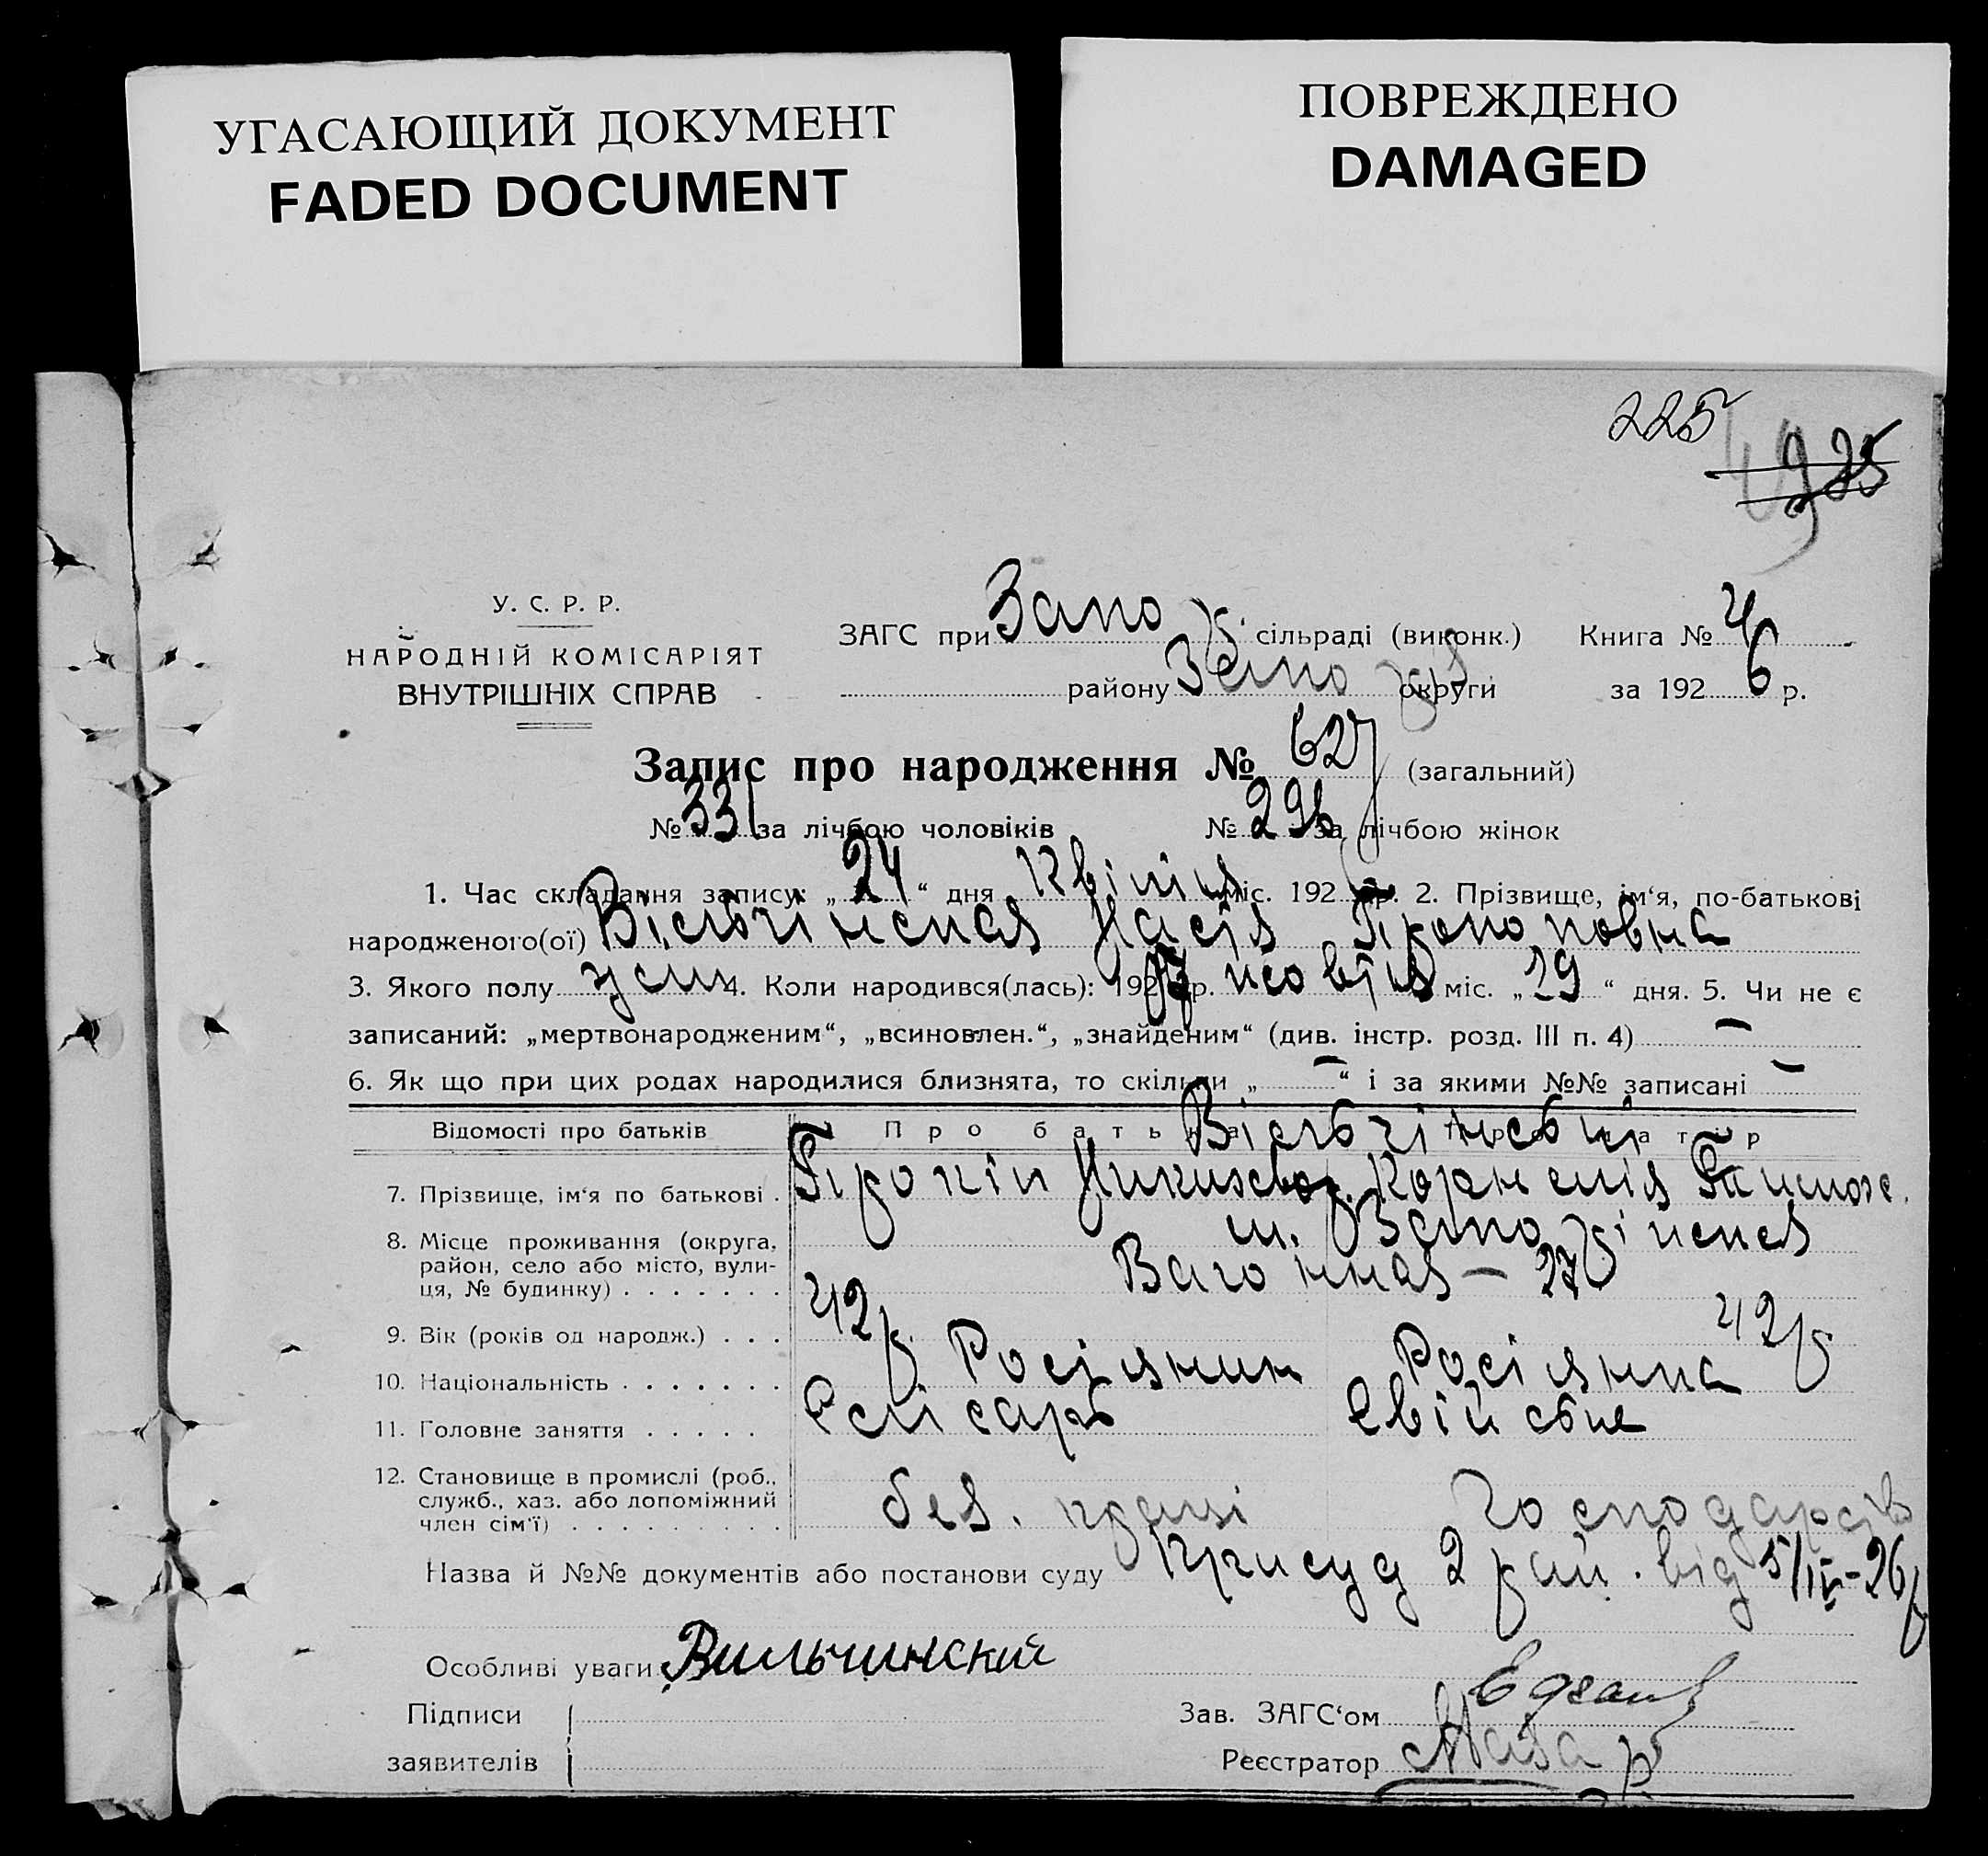 УГАСАЮЩИЙ ДОКУМЕНТ
FADED DOCUMENT
ПОВРЕЖДЕНО
DAMAGED
225
925
У. С. Р. Р.
НАРОДНІЙ КОМІСАРІЯТ
ВНУТРІШНІХ СПРАВ
ЗАГС при Запо сільраді (виконк.) Книга № 4
району Запо округи за 192 6 р.
Запис про народження № 627 (загальний)
№ 331 за лічбою чоловіків № 296 за лічбою жінок
1. Час складання запису: „ 24 “ дня Квітня міс. 192 р. 2. Прізвище, ім‘я, по-батькові
народженого(ої) Вільчінская Прокоповна
3. Якого полу 4. Коли народився(лась): 192 р. жовтня міс. „ 29 “ дня. 5. Чи не є
записаний: „мертвонародженим“, „всиновлен.“, „знайденим“ (див. інстр. розд. III п. 4) —
6. Як що при цих родах народилися близнята, то скільки „ — “ і за якими №№ записані —
Відомості про батьків Про батька Про матір
Вільчінські
7. Прізвище, ім‘я по батькові . Прокіп Корнелія
8. Місце проживання (округа, район, село або місто, вулиця, № будинку) . . . . . . .
м. Запо
Вагонная — 27
9. Вік (років од народж.) . . . 42 р 42 р
10. Національність . . . . . . . Росіянин Росіянка
11. Головне заняття . . . . . Слісарь Свійське
12. Становище в промислі (роб., служб., хаз. або допоміжний член сім‘ї) . . . . . . . . .
без. праці Господарсів
Назва й №№ документів або постанови суду Присуд 2 рай. від 5/IV-26 р
Особливі уваги Вильчинский
Підписи
заявителів
Зав. ЗАГС‘ом
Реєстратор